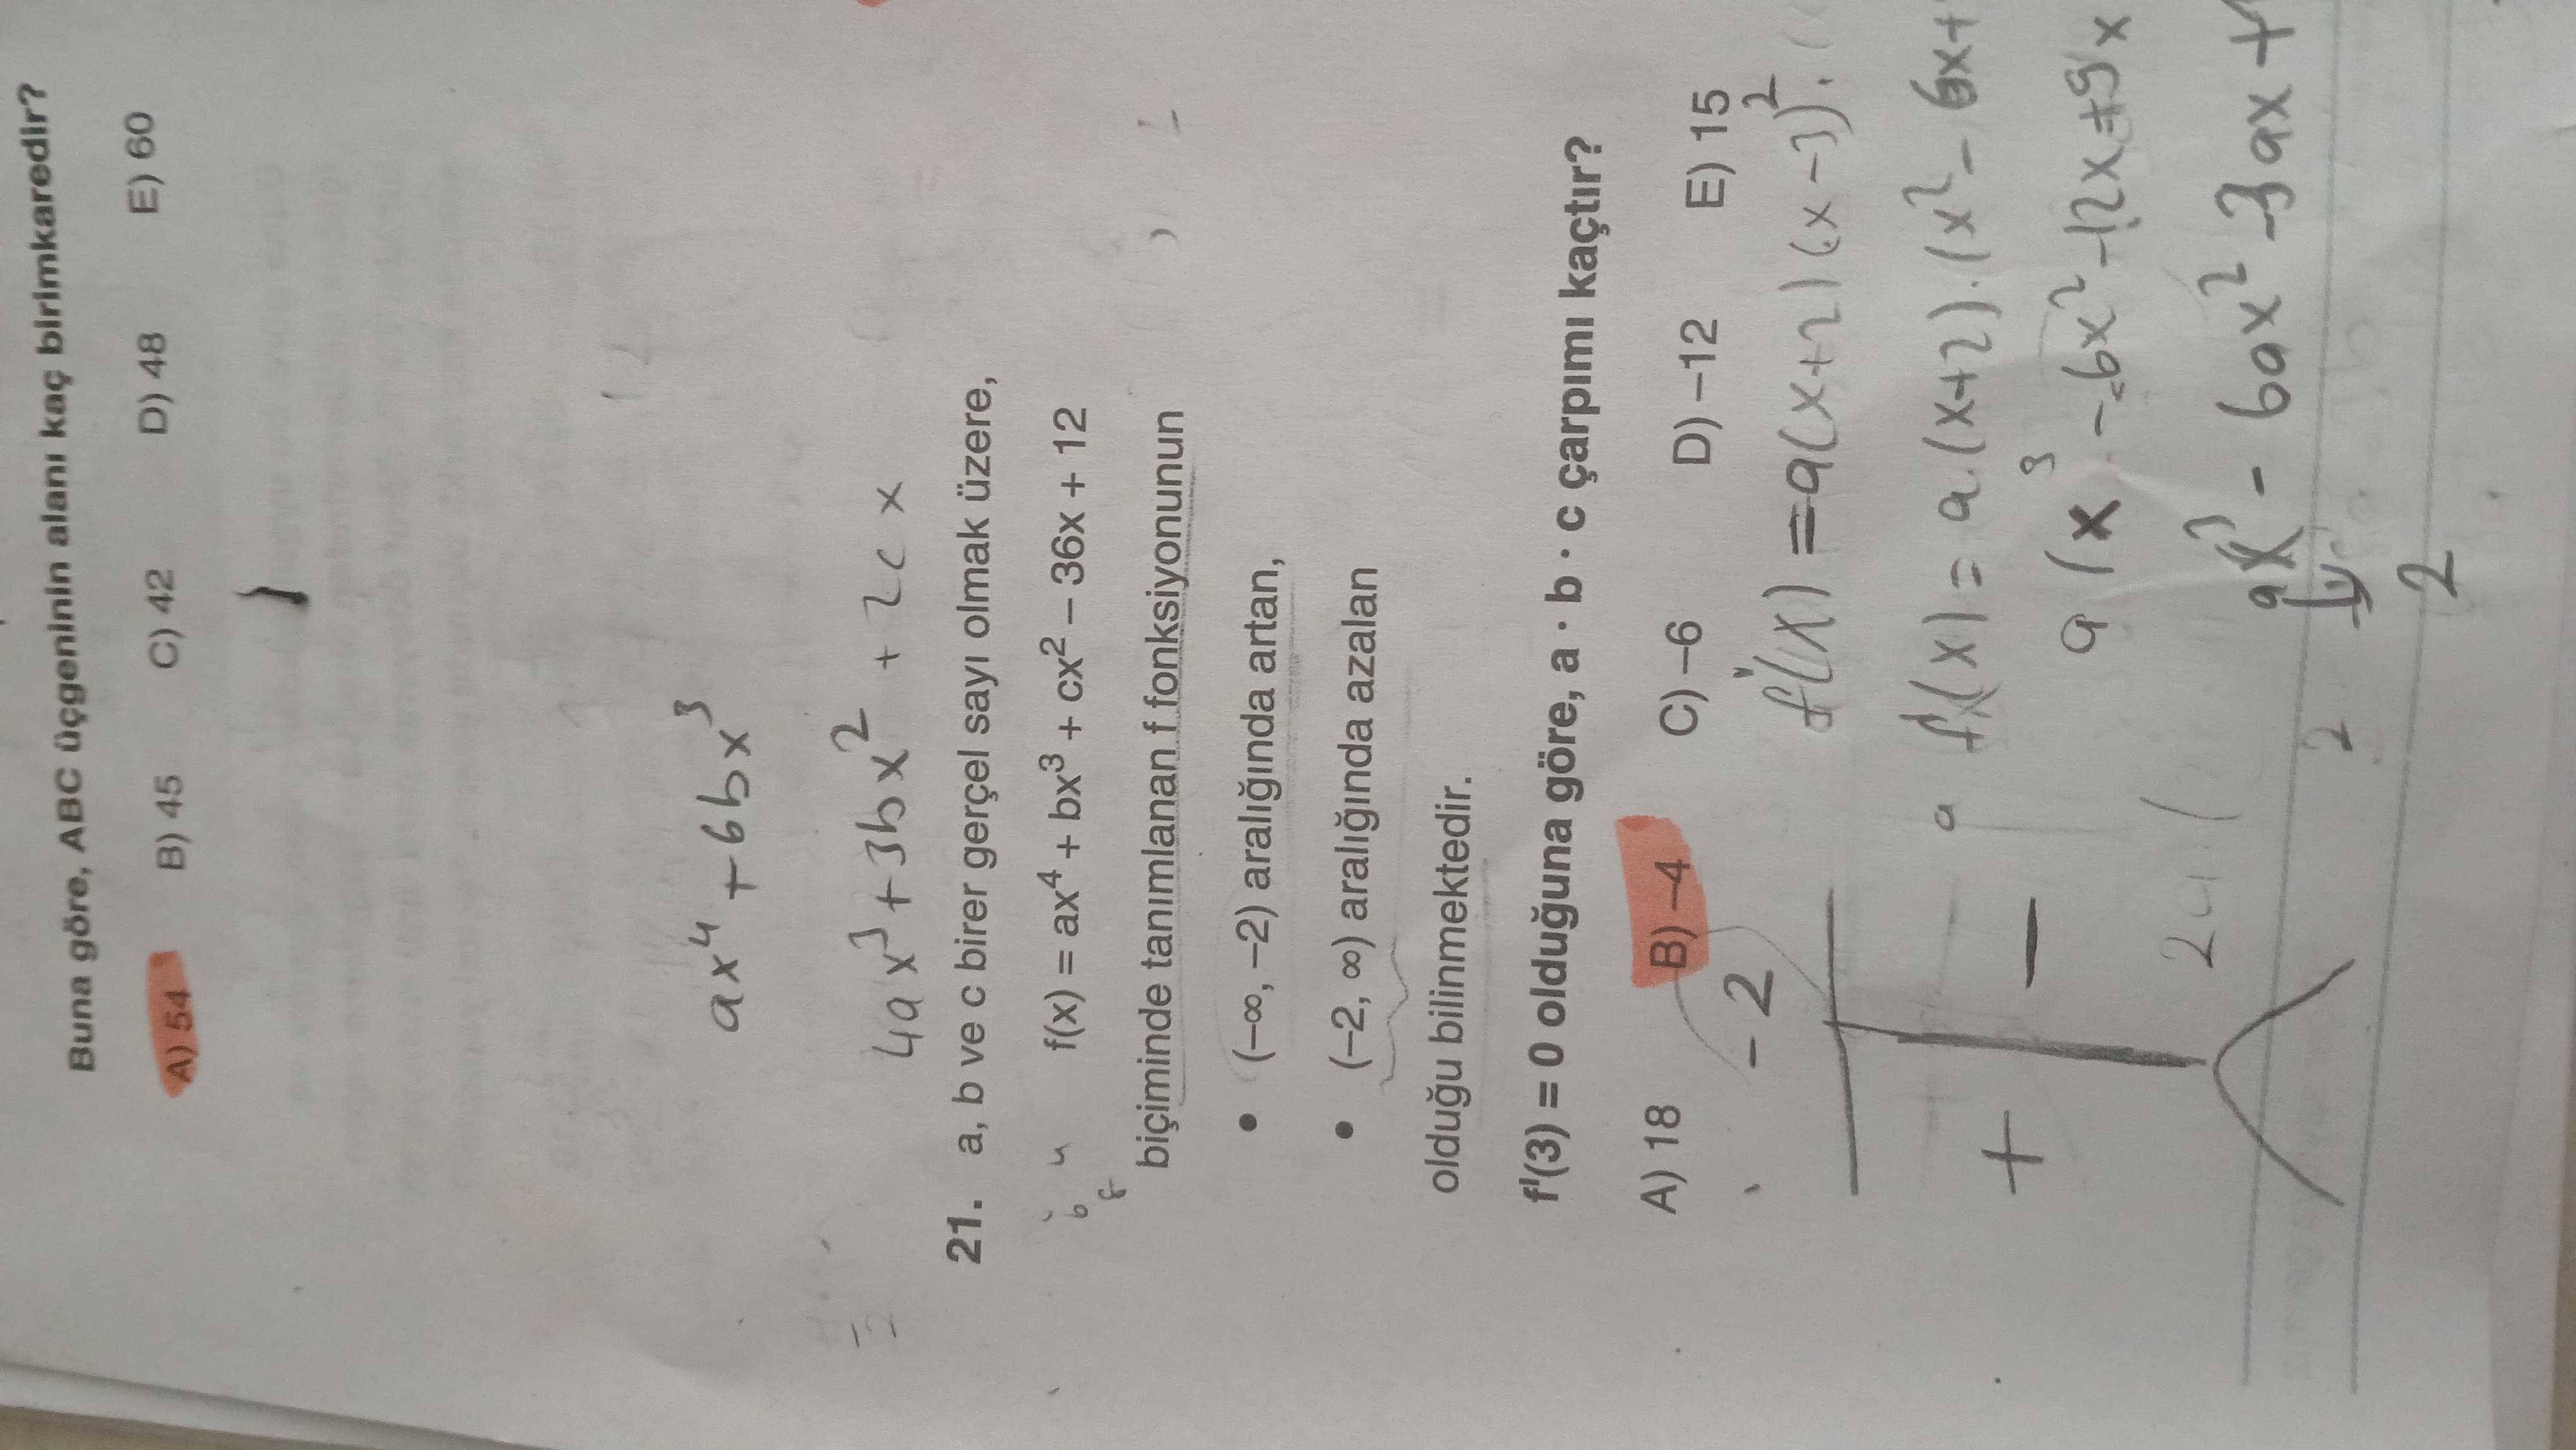 Buna göre, ABC üçgeninin alanı kaç birimkaredir?
A) 54 B) 45 C) 42 D) 48 E) 60
ax⁴ + 6bx³
4ax³ + 3bx² + 2cx
21. a, b ve c birer gerçel sayı olmak üzere,
f(x) = ax⁴ + bx³ + cx² – 36x + 12
biçiminde tanımlanan f fonksiyonunun
• (–∞, –2) aralığında artan,
• (–2, ∞) aralığında azalan
olduğu bilinmektedir.
f'(3) = 0 olduğuna göre, a · b · c çarpımı kaçtır?
A) 18 B) –4 C) –6 D) –12 E) 15
-2
+ -
f'(x) = a(x+2)(x-3)².
f'(x) = a.(x+2).(x² - 6x+
a(x³ - 6x² - 12x + 9x
ax³ - 6ax² - 3ax +
2
2